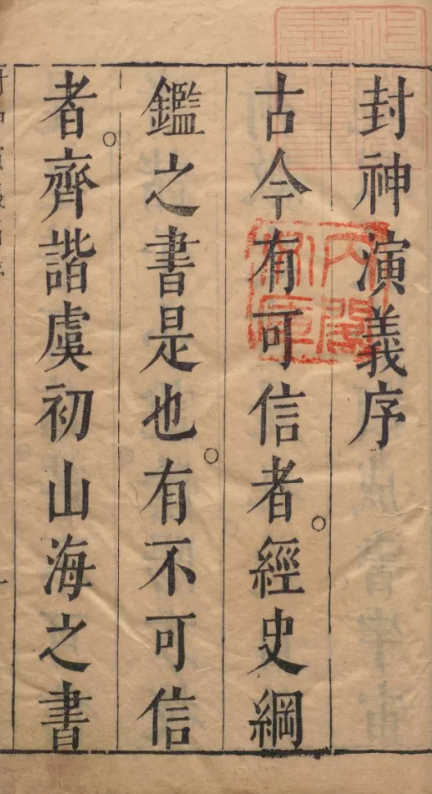 封神演義序
古今有可信者。經史綱
鑑之書是也。有不可信
者。齊諧虞初山海之書
內閣文庫